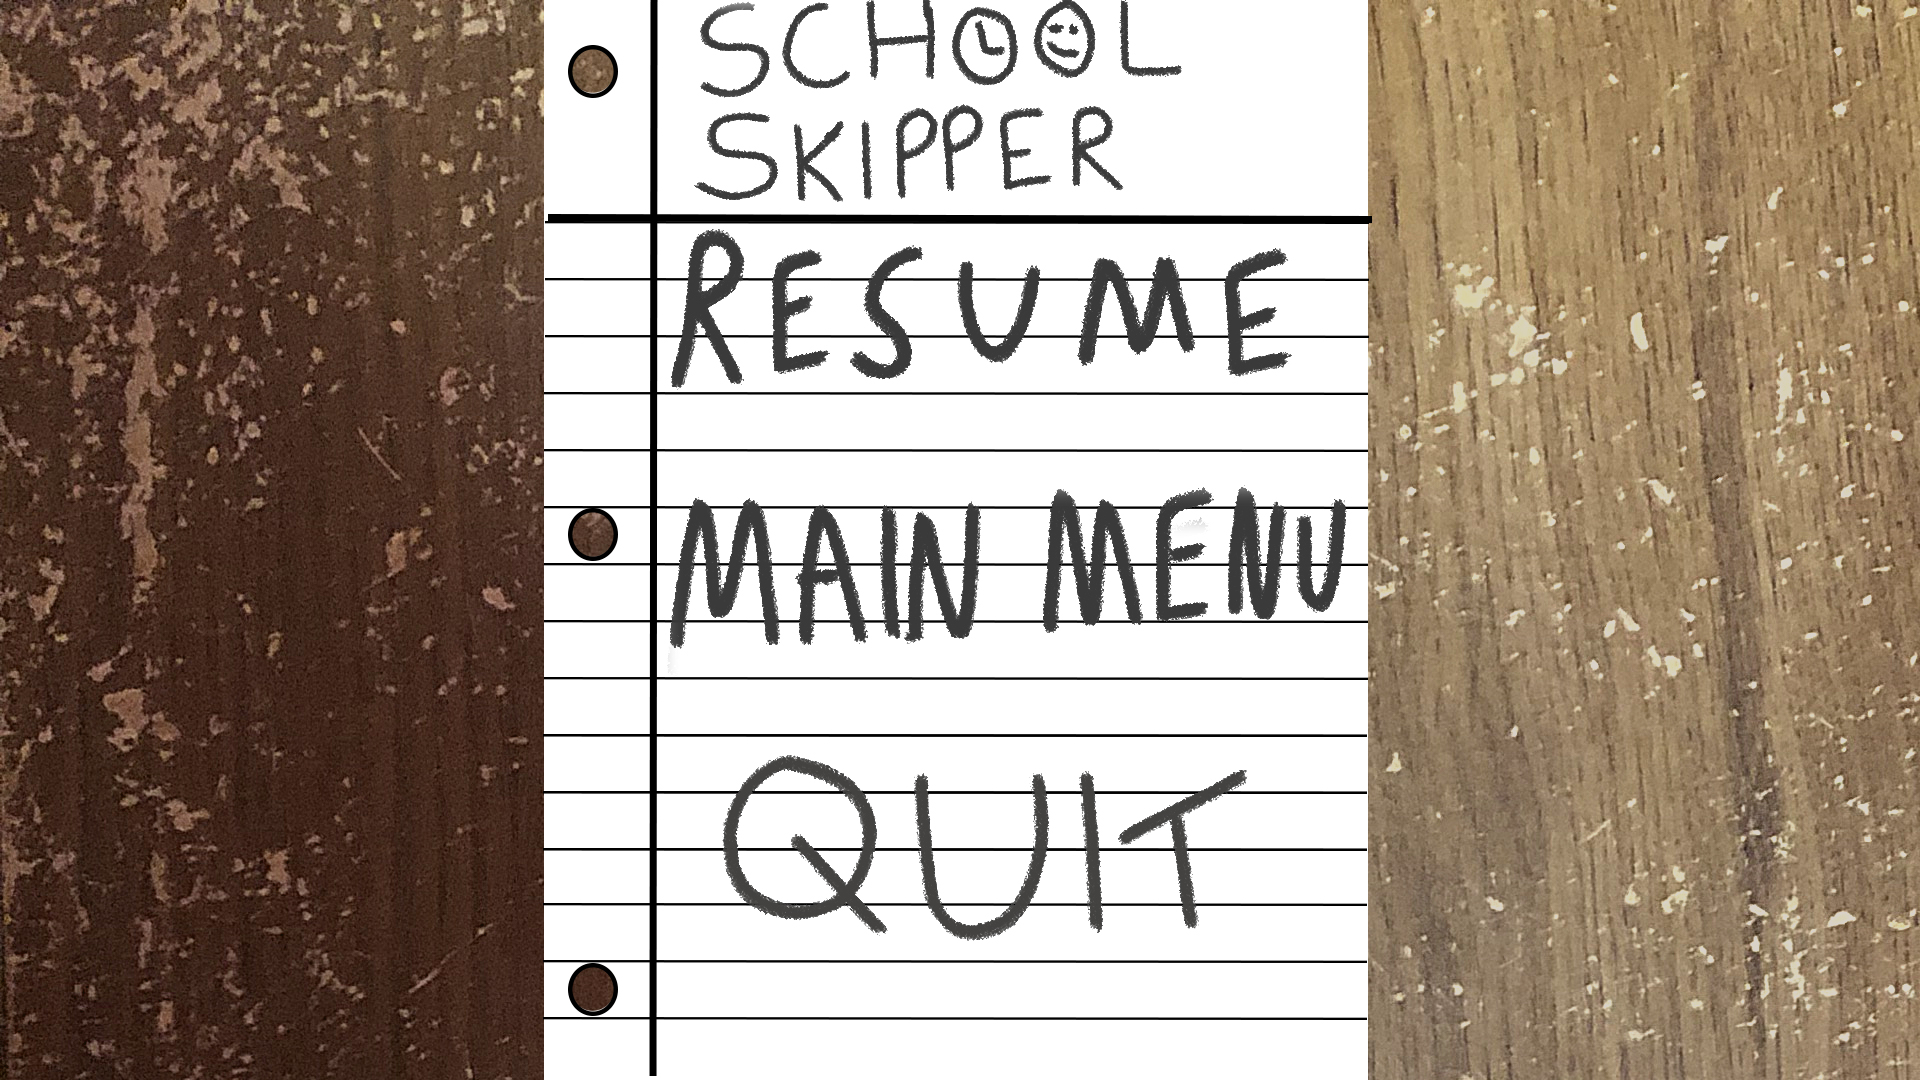 SCHOOL
SKIPPER
RESUME
MAIN MENU
QUIT